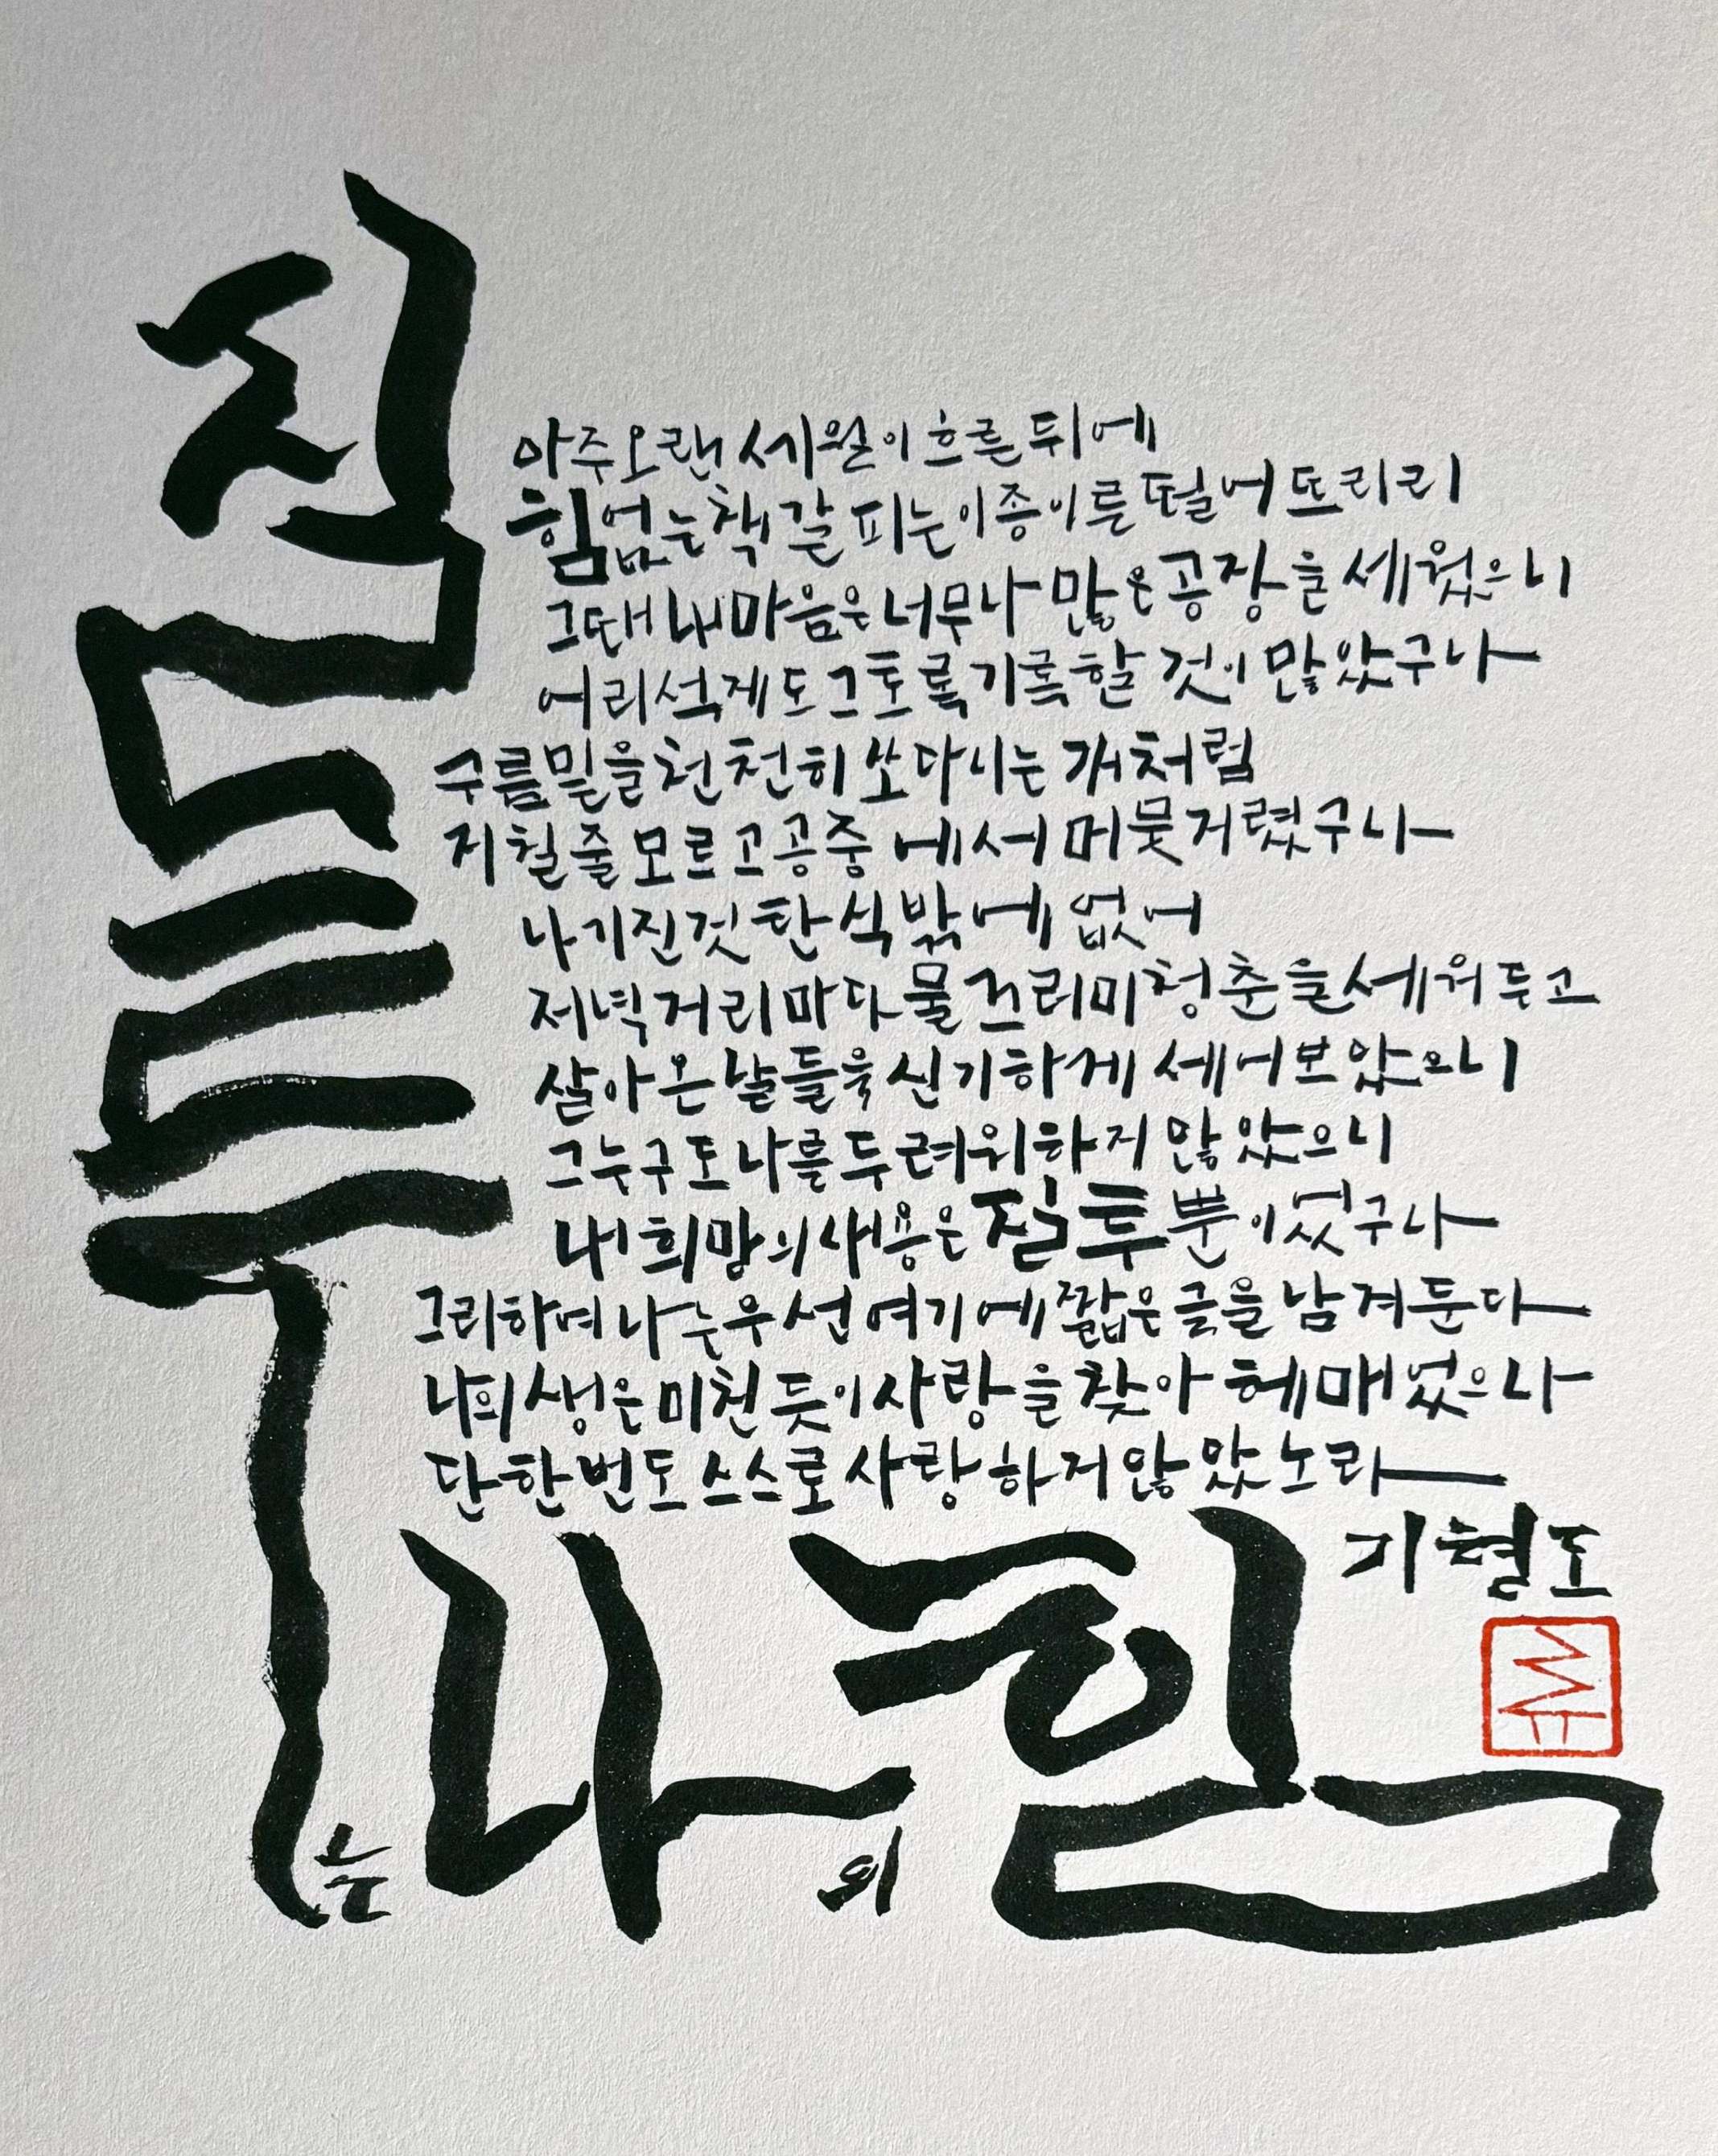 질투는 나의 힘
아주 오랜 세월이 흐른 뒤에
힘없는 책갈피는 이 종이를 떨어뜨리리
그때 내 마음은 너무나 많은 공장을 세웠으니
어리석게도 그토록 기록할 것이 많았구나
구름 밑을 천천히 쏘다니는 개처럼
지칠 줄 모르고 공중에서 머뭇거렸구나
나 가진 것 탄식 밖에 없어
저녁 거리마다 물끄러미 청춘을 세워두고
살아온 날들을 신기하게 세어보았으니
그 누구도 나를 두려워하지 않았으니
내 희망의 내용은 질투뿐이었구나
그리하여 나는 우선 여기에 짧은 글을 남겨둔다
나의 생은 미친 듯이 사랑을 찾아 헤매었으나
단 한번도 스스로 사랑하지 않았노라
기형도